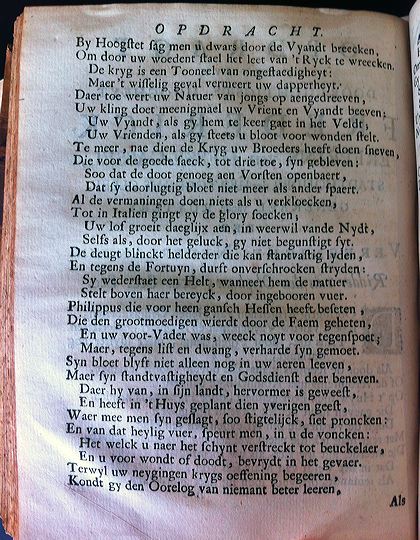 OPDRACHT.
By Hoogstet sag men u dwars door de Vyandt breecken,
Om door uw woedent stael het leet van 't Ryck te wreecken.
De kryg is een Tooneel van ongestaedigheyt:
Maer 't wisselig geval vermeert uw dapperheyt.
Daer toe wert uw Natuer van jongs op aengedreeven,
Uw kling doet meenigmael uw Vrient en Vyandt beeven:
Uw Vyandt, als gy hem te keer gaet in het Veldt,
Uw Vrienden, als gy steets u bloot voor wonden stelt.
Te meer, nae dien de Kryg uw Broeders heeft doen sneven,
Die voor de goede saeck, tot drie toe, syn gebleven:
Soo dat de doot genoeg aen Vorsten openbaert,
Dat sy doorlugtig bloet niet meer als ander spaert.
Al de vermaningen doen niets als u verkloecken,
Tot in Italien gingt gy de glory soecken,
Uw lof groeit daeglijx aen, in weerwil vande Nydt,
Selfs als, door het geluck, gy niet begunstigt syt.
De deugt blinckt helderder die kan stantvastig lyden,
En tegens de Fortuyn, durft onverschrocken stryden:
Sy wederstaet een Helt, wanneer hem de natuer
Stelt boven haer bereyck, door ingebooren vuer.
Philippus die voor heen gansch Hessen heeft beseten,
Die den grootmoedigen wierdt door de Faem geheten,
En uw voor-Vader was, weeck noyt voor tegenspoet;
Maer, tegens list en dwang, verharde syn gemoet.
Syn bloet blyft niet alleen nog in uw aeren leeven,
Maer syn standtvastigheydt en Godsdienst daer beneven.
Daer hy van, in syn landt, hervormer is geweest,
En heeft in 't Huys geplant dien yverigen geest,
Waer mee men syn geslagt, soo stigtelijck, siet proncken:
En van dat heylig vuer, speurt men, in u de voncken:
Het welck u naer het schynt verstreckt tot beuckelaer,
En u voor wondt of doodt, bevrydt in het gevaer.
Terwyl uw neygingen krygs oeffening begeeren,
Kondt gy den Oorelog van niemant beter leeren,
Als